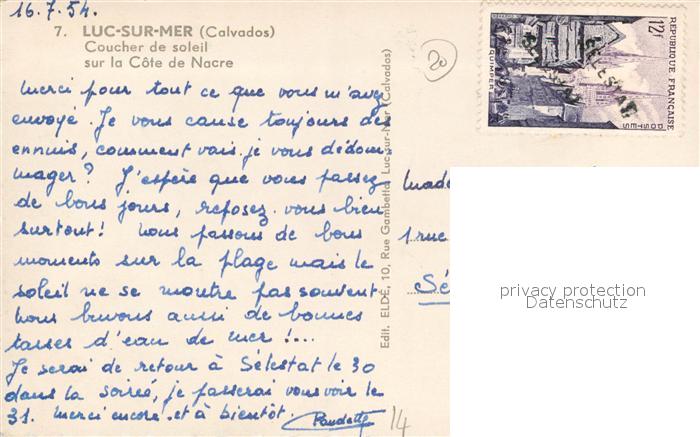 16.7.54.
7. LUC-SUR-MER (Calvados)
Coucher de soleil
sur la Côte de Nacre
Merci pour tout ce que vous m'avez
envoyé. Je vous cause toujours des
ennuis, comment vais-je vous dédom-
mager? J'espère que vous passez
de bons jours, reposez-vous bien
surtout! Nous passons de bons
moments sur la plage mais le
soleil ne se montre pas souvent.
Nous buvons aussi de bonnes
tasses d'eau de mer!...
Je serai de retour à Sélestat le 30
dans la soirée, je passerai vous voir le
31. Merci encore et à bientôt.
Edit. ELDÉ, 10, Rue Gambetta, Luc-sur-Mer (Calvados)
20
14
REPUBLIQUE FRANÇAISE
12f
POSTES
QUIMPER
SELESTAT
Made
1 rue
Sé
privacy protection
Datenschutz